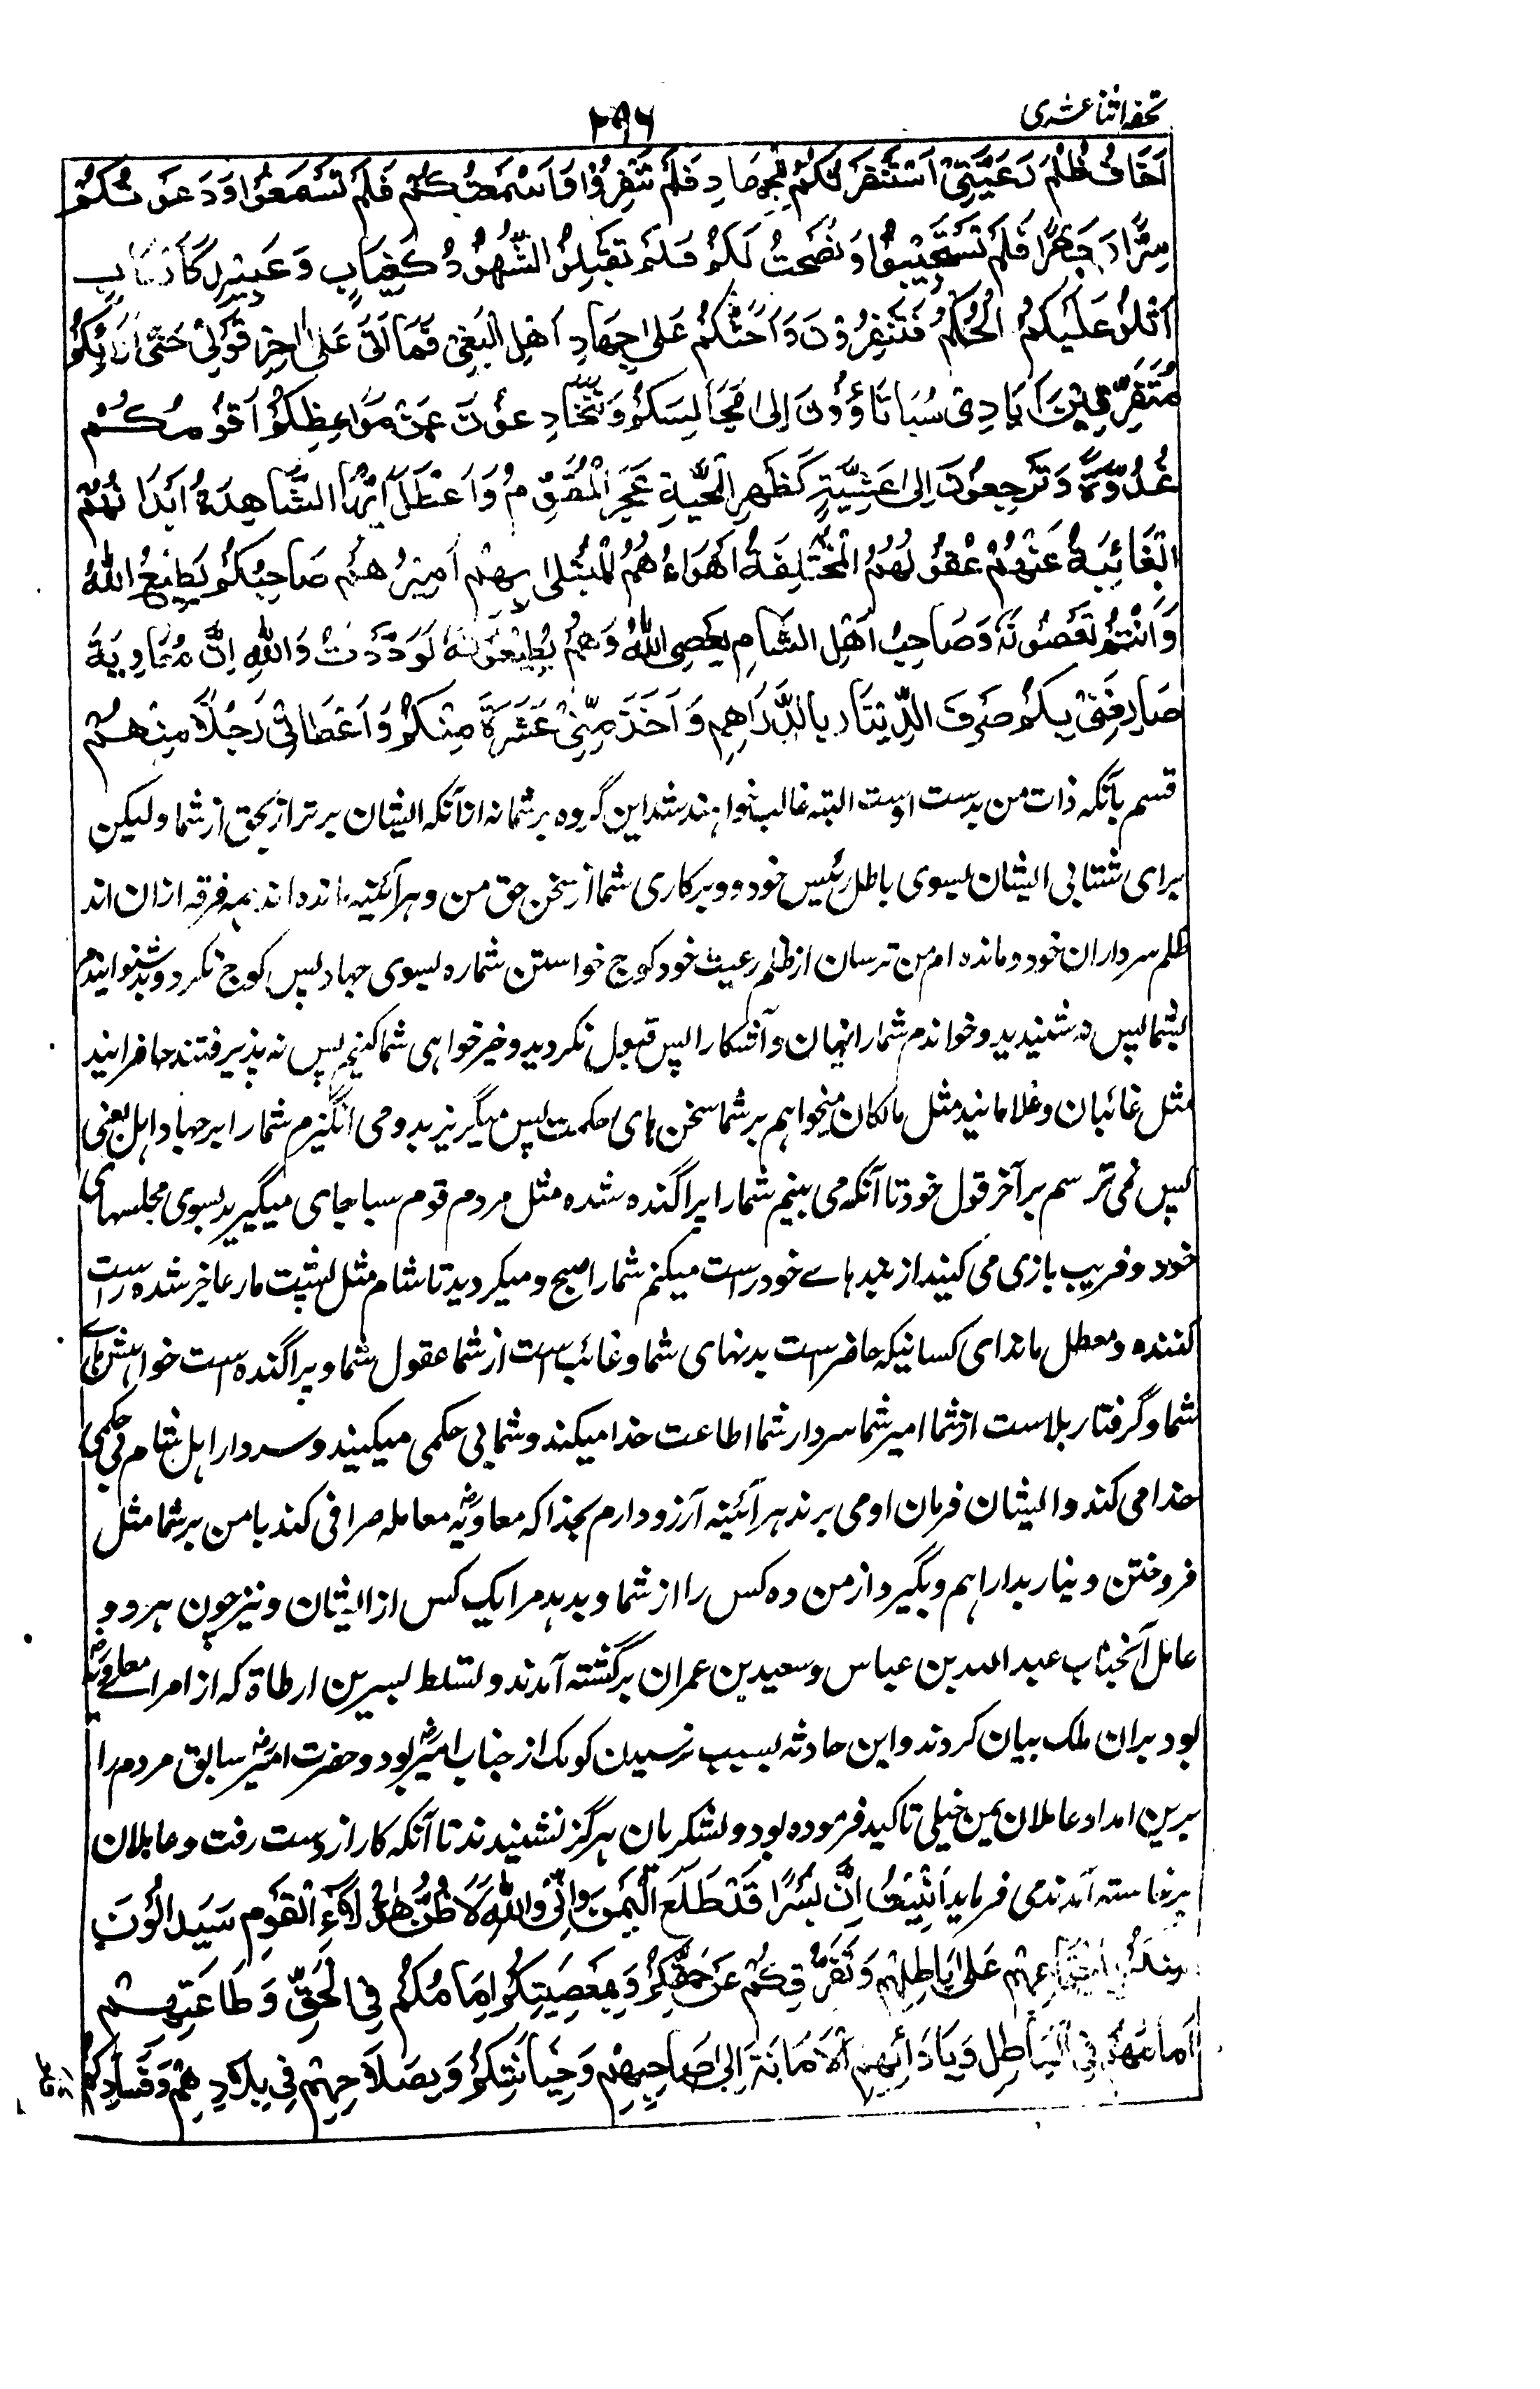 تحفہ اثنا عشری
۲۹۶
اَخَافُ ظُلْمَ رَعِیَّتِیْ اَسْتَنْفَرْتُكُمْ لِلْجِهَادِ فَلَمْ تَنْفِرُوْا وَاَسْمَعْتُكُمْ فَلَمْ تَسْمَعُوْا وَدَعَوْتُكُمْ
سِرًّا وَجَهْرًا فَلَمْ تَسْتَجِیْبُوْا وَنَصَحْتُ لَكُمْ فَلَمْ تَقْبَلُوْا الشُّهُوْدُ كَغِیَابٍ وَعَبِیْدٌ كَاَرْبَابٍ
اَتْلُوْ عَلَیْكُمُ الْحُكْمَ فَتَنْفِرُوْنَ وَاَحُثُّكُمْ عَلٰی جِهَادِ اَهْلِ الْبَغْیِ فَمَا اٰتٰی عَلٰی اٰخِرِ قَوْلِیْ حَتّٰی اَرَاكُمْ
مُتَفَرِّقِیْنَ اَیَادِیْ سَبَا تَاوُوْنَ اِلٰی مَجَالِسِكُمْ وَتَتَخَادَعُوْنَ عَنْ مَوَاعِظِكُمْ اُقَوِّمُكُمْ
غُدْوَةً وَتَرْجِعُوْنَ اِلٰی عَشِیَّةٍ كَظَهْرِ الْحَیَّةِ عَجَزَ الْمُقَوِّمُ وَاَعْضَلَ اَیُّهَا الشَّاهِدَةُ اَبْدَانُهُمْ
الْغَائِبَةُ عَنْهُمْ عُقُوْلُهُمُ الْمُخْتَلِفَةُ اَهْوَاءُهُمُ الْمُبْتَلٰی بِهِمْ اَمِیْرُهُمْ صَاحِبُكُمْ یُطِیْعُ اللّٰهَ
وَاَنْتُمْ تَعْصُوْنَهٗ وَصَاحِبُ اَهْلِ الشَّامِ یَعْصِی اللّٰهَ وَهُمْ یُطِیْعُوْنَهٗ لَوَدَدْتُ وَاللّٰهِ اِنَّ مُعَاوِیَةَ
صَارَفَنِیْ بِكُمْ صَرْفَ الدِّیْنَارِ بِالدَّرَاهِمِ وَاَخَذَ مِنِّیْ عَشَرَةً مِّنْكُمْ وَاَعْطَانِیْ رَجُلًا مِنْهُمْ
قسم بآنکه ذات من بدست اوست البته غالب خواهند شد این گروه بر شما نه از آنکه ایشان برتر از بحق از شما و لیکن
برای شتابی ایشان بسوی باطل رئیس خود و دیرکاری شما از سخن حق من و هر آئینه مانده اند همه فرقه ازان اند
ظلم سرداران خود و مانده ام من ترسان از ظلم رعیت خود کوچ خواستن شما ره بسوی جهاد پس کوچ نکردید و شنوانیدم
بشما پس نه شنیدید و خواندم شما را نهان و آشکارا پس قبول نکردید و خیرخواهی شما کنیم پس نه پذیرفتند حاضرانید
مثل غائبان و غلامانید مثل مالکان میخوانم بر شما سخن های حکمت پس میگریزید و می انگیزم شما را بر جهاد اهل بغی
پس نمی ترسم بر آخر قول خود تا آنکه می بینم شما را پراگنده شده مثل مردم قوم سبا جای میگیرید بسوی مجلسهای
خود و فریب بازی می کنید از پندهاے خود راست میکنم شما را صبح و میگردید تا شام مثل پشت مار عاجز شده راست
کننده و معطل ماند ای کسانیکه حاضر ست بدنهای شما و غائب ست از شما عقول شما و پراگنده است خواهشهاے
شما و گرفتار بلاست از شما امیر شما سردار شما اطاعت خدا میکند و شما بی حکمی میکنید و سردار اهل شام بی حکمی
خدا می کند و ایشان فرمان او می برند هر آئینه آرزو دارم بخدا که معاویهؓ معامله صرافی کند با من بر شما مثل
فروختن دینار بدراهم و بگیرد از من ده کس را از شما و بدهد مرا یک کس از ایشان و نیز چون هر دو
عامل آنجناب عبد الله بن عباس و سعید بن عمران برگشته آمدند و تسلط بسر بن ارطاة که از امراے معاویهؓ
بود بران ملک بیان کردند و این حادثه بسبب نرسیدن کومک از جناب امیرؓ بود و حضرت امیرؓ سابق مردم را
برین امداد عاملان یمن خیلی تاکید فرموده بود و لشکریان هرگز نشنیدند تا آنکه کار از دست رفت و عاملان
برخاسته آمدند می فرماید اُنْبِئْتُ اِنَّ بُسْرًا قَدْ طَلَعَ الْیَمَنَ وَاِنِّیْ وَاللّٰهِ لَاَظُنُّ هٰؤُلَاءِ الْقَوْمَ سَیَدَالُوْنَ
مِنْكُمْ بِاجْتِمَاعِهِمْ عَلٰی بَاطِلِهِمْ وَتَفَرُّقِكُمْ عَنْ حَقِّكُمْ وَبِمَعْصِیَتِكُمْ اِمَامَكُمْ فِی الْحَقِّ وَطَاعَتِهِمْ
اِمَامَهُمْ فِی الْبَاطِلِ وَبِاَدَائِهِمُ الْاَمَانَةَ اِلٰی صَاحِبِهِمْ وَخِیَانَتِكُمْ وَبِصَلَاحِهِمْ فِیْ بِلَادِهِمْ وَفَسَادِكُمْ